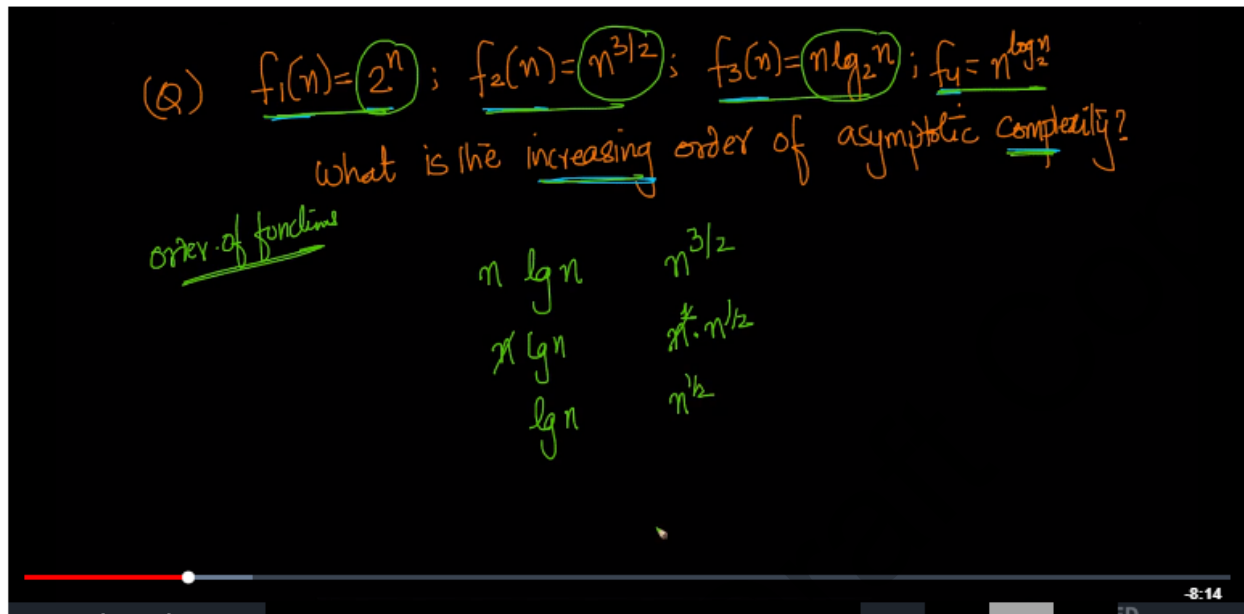 (Q) f₁(n)=2ⁿ ; f₂(n)=n^3/2 ; f₃(n)=n lg₂n ; f₄=n^log₂n
What is the increasing order of asymptotic complexity?
order of functions
n lg n n^3/2
n lg n n.n^1/2
lg n n^1/2
-8:14